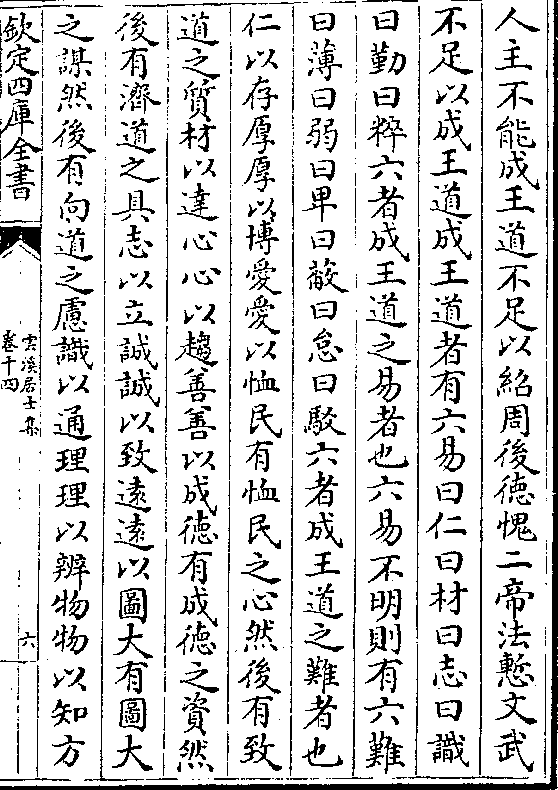 人主不能成王道不足以紹周後德愧二帝法慙文武
不足以成王道成王道者有六易曰仁曰材曰志曰識
曰勤曰粹六者成王道之易者也六易不明則有六難
曰薄曰弱曰卑曰蔽曰怠曰駁六者成王道之難者也
仁以存厚厚以博愛愛以恤民有恤民之心然後有致
道之質材以達心心以趨善善以成德有成德之資然
後有濟道之具志以立誠誠以致遠遠以圖大有圖大
之謀然後有向道之慮識以通理理以辨物物以知方
欽定四庫全書
雲溪居士集
卷十四
六